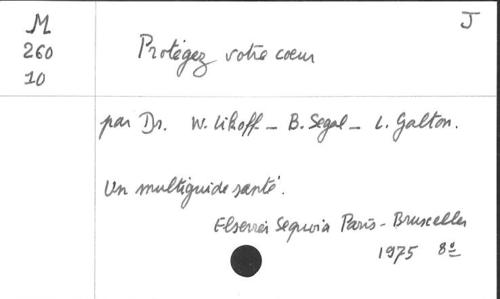 M
260
10
J
Protégez votre coeur
par Dr. W. Likoff - B. Segal - L. Galton.
Un multiguide santé.
Elsevier Sequoia Paris - Bruxelles
1975 8º